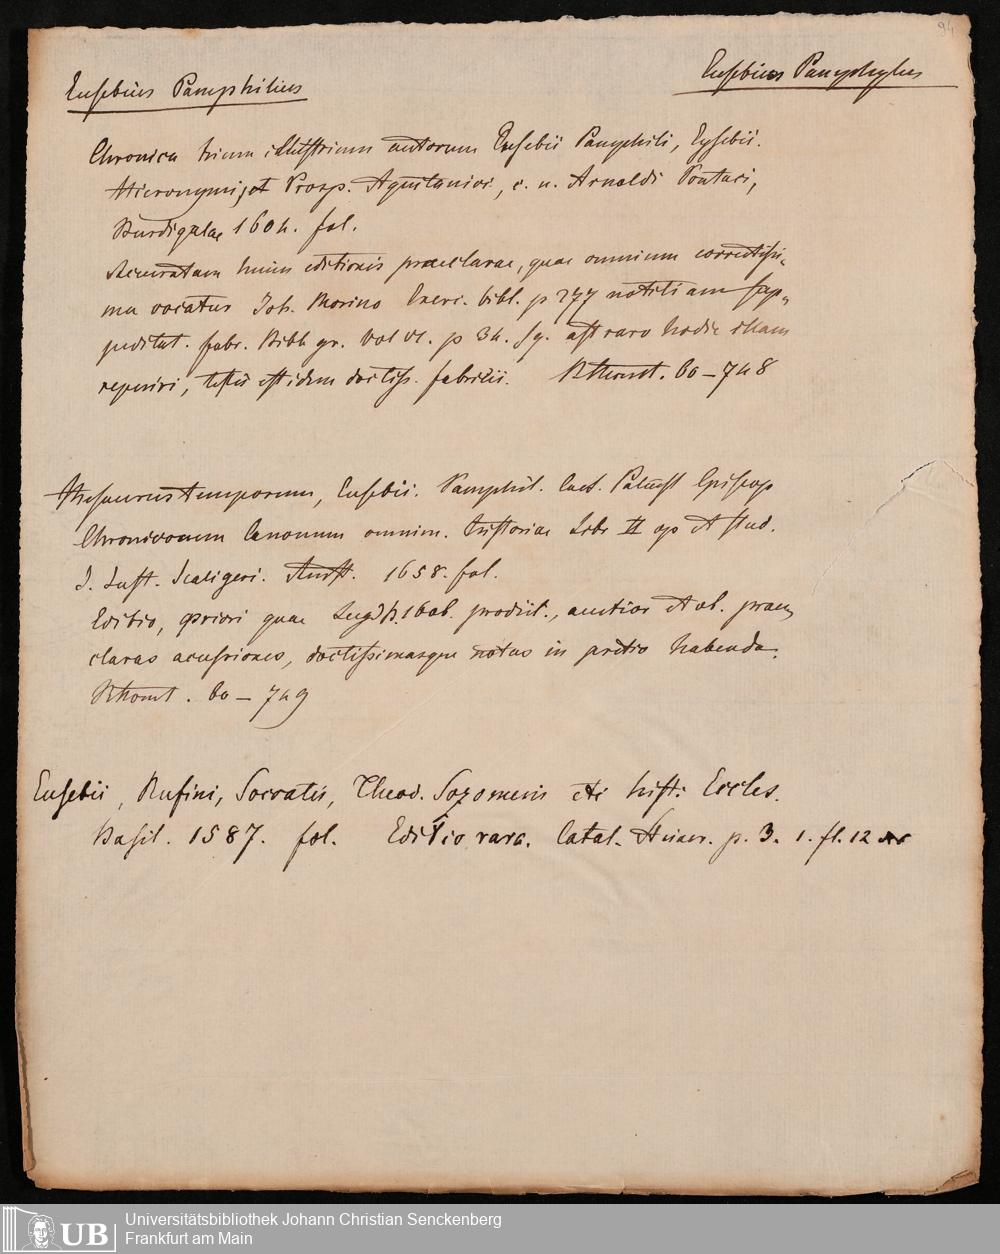 94
Eusebius Pamphilius
Eusebius Pamphylus
Chronica trium illustrium autorum Eusebii Pamphili, Eusebii.
Hieronymi, et Prosp. Aquitanici, c. n. Arnaldi Pontaci,
Burdigalae 1604. fol.
Accuratam huius editionis praeclarae, quae omnium correctissi„
ma vocatur Joh. Morino Exerc. bibl. p 277 notitiam sup„
peditat. fabr. Bibl gr. Vol VI. p 34. sq. ast raro hodie illam
reperiri, testis est idem doctiss. fabricius. 60–748
Thesaurus temporum, Eusebii. Pamphil. Caes. Palaest Episcop
Chronicorum Canonum omnim. Historiae Libr II op et stud.
J. Just. Scaligeri. Amst. 1658. fol.
Editio, priori quae Lugd B. 1606. prodiit., auctior et ob. prae„
claras accessiones, doctissimasque notas in pretio habenda.
60 – 749
Eusebii, Rufini, Socratis, Theod. Sozomenis etc hist. Eccles.
Basil. 1587. fol. Editio rara. Catal. p. 3. 1. fl. 12
Universitätsbibliothek Johann Christian Senckenberg
UB Frankfurt am Main